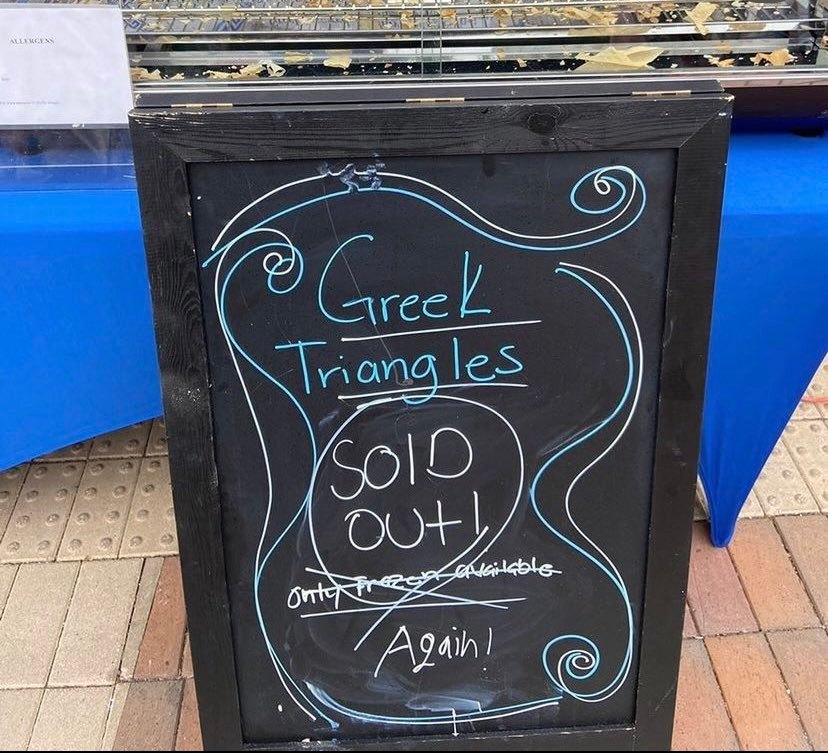 ALLERGENS
Greek
Triangles
SOLD
OUT!
only frozen available
Again!